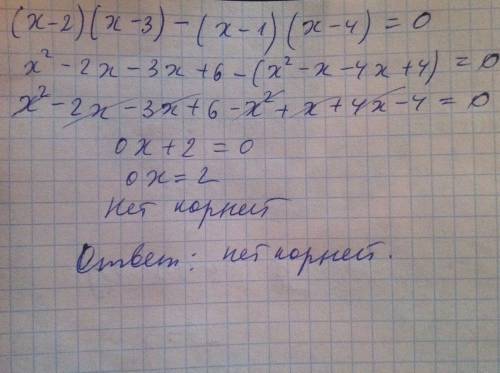 (x-2)(x-3)-(x-1)(x-4)=0
x²-2x-3x+6-(x²-x-4x+4)=0
x²-2x-3x+6-x²+x+4x-4=0
0x+2=0
0x=2
Нет корней
Ответ: нет корней.